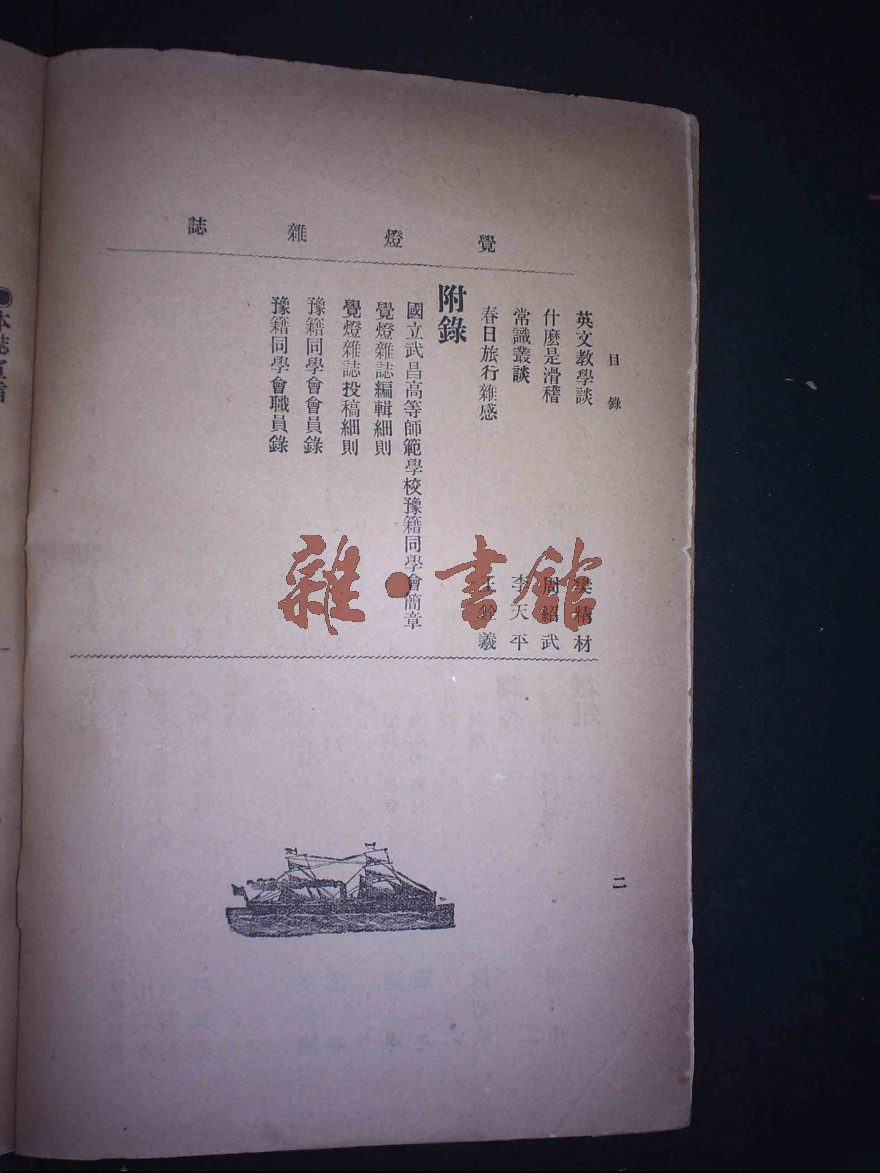 目錄
二
覺燈雜誌
英文教學談 樊精材
什麼是滑稽 周紹武
常識叢談 李天平
春日旅行雜感 銓羲
附錄
國立武昌高等師範學校豫籍同學會簡章
覺燈雜誌編輯細則
覺燈雜誌投稿細則
豫籍同學會會員錄
豫籍同學會職員錄
本誌宣言
雜·書館